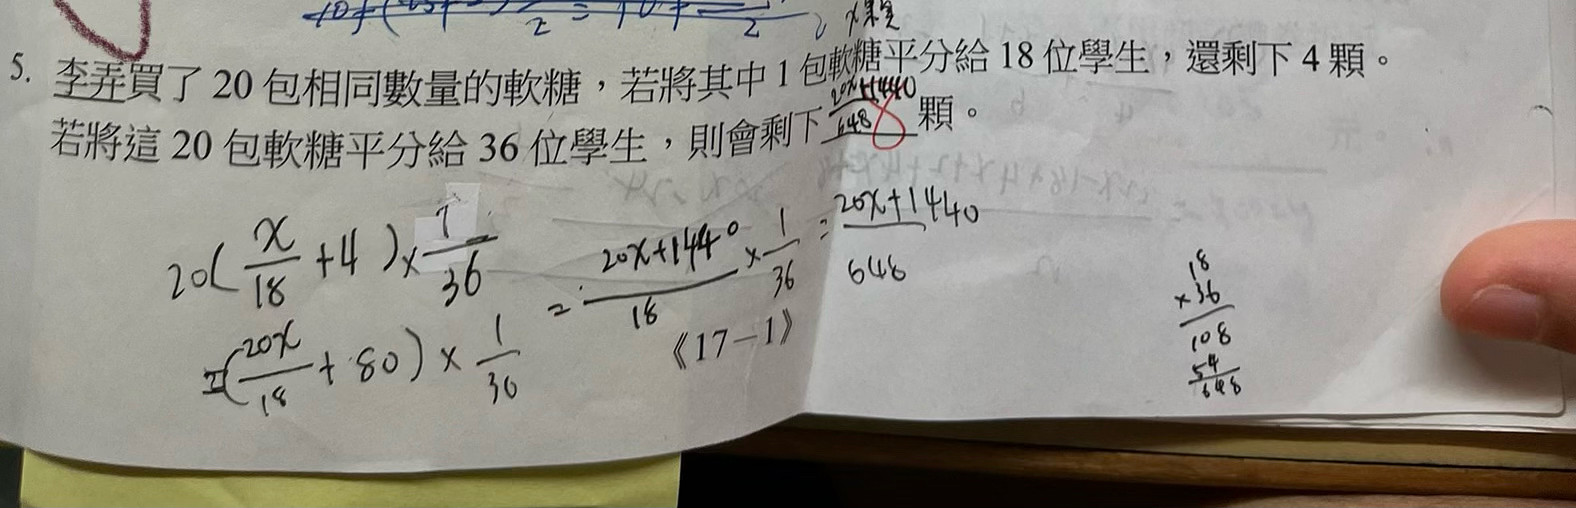 x 顆
5. 李弄買了 20 包相同數量的軟糖，若將其中 1 包軟糖平分給 18 位學生，還剩下 4 顆。
若將這 20 包軟糖平分給 36 位學生，則會剩下 (20x+1440)/648 8 顆。
20(x/18 +4)×1/36 = (20x+1440)/18 ×1/36 = (20x+1440)/648
=(20x/18 + 80) × 1/36
《17－1》
18
×36
108
54
648